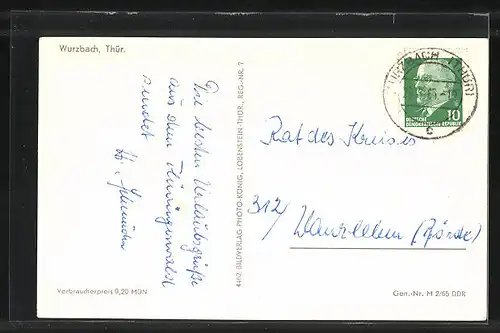 Wurzbach, Thür.
Die besten Urlaubsgrüße
aus dem Thüringerwald
sendet
4402 BILDVERLAG PHOTO-KÖNIG, LOBENSTEIN-THÜR., REG.-NR. 7
WURZBACH (THÜR)
c
10
DEUTSCHE
DEMOKRATISCHE REPUBLIK
Rat des Kreises
312/ Wanzleben (Börde)
Verbraucherpreis 0,20 MDN
Gen.-Nr. M 2/65 DDR